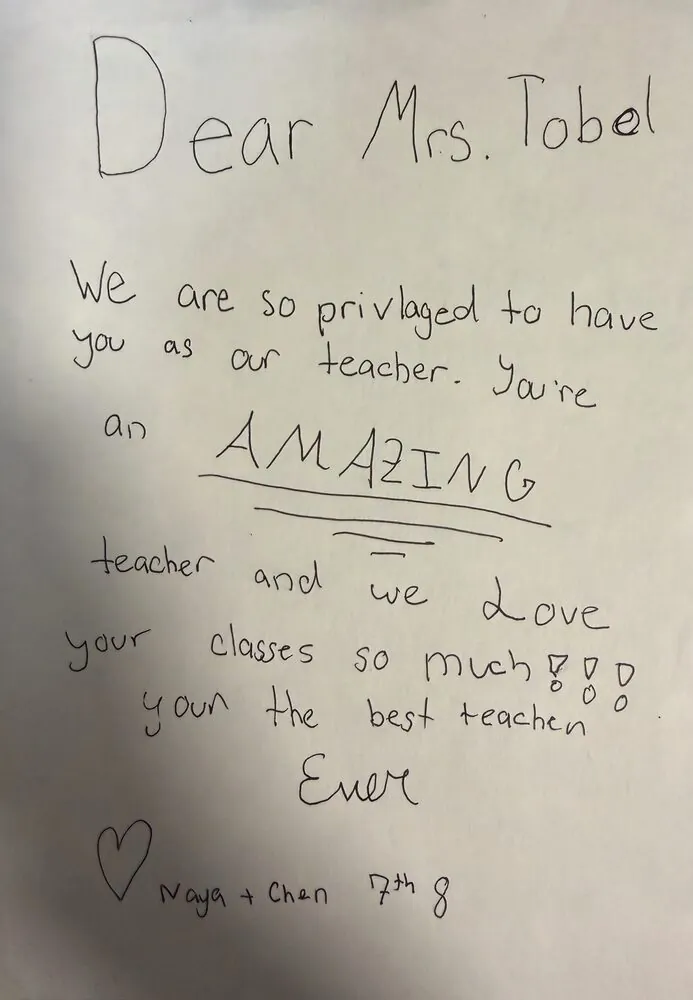 Dear Mrs. Tobel
We are so privlaged to have
you as our teacher. You're
an AMAZING
teacher and we Love
your classes so much!!!
your the best teacher
Ever
Naya + Chen 7th 8